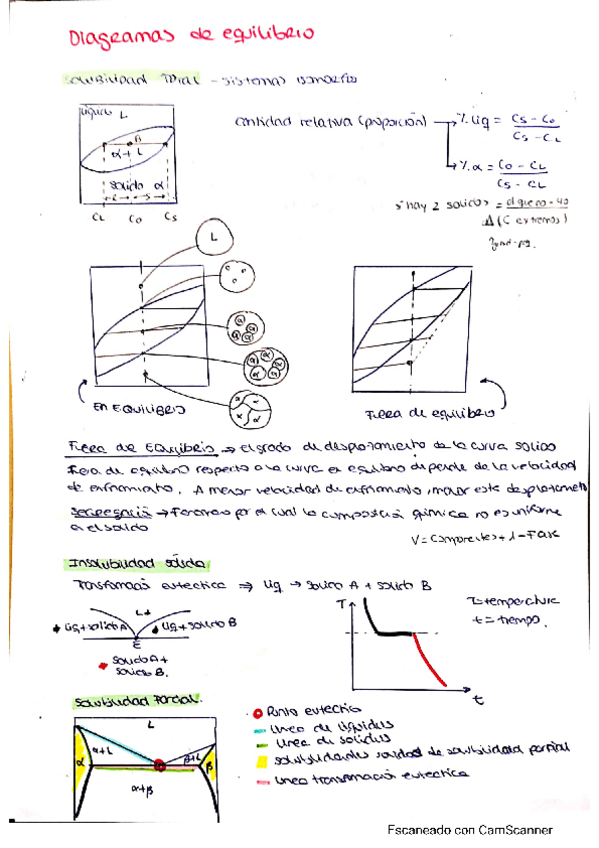 Diagramas de equilibrio
Solubilidad total - sistemas isomorfos
Líquido L
B
α + L
Solido α
CL Co Cs
cantidad relativa (proporción) → % Liq = Cs - Co / Cs - CL
→ % α = Co - CL / Cs - CL
si hay 2 solidos =
Δ (C extremos)
L
α α α α
α α α α α
α α α α
EN EQUILIBRIO
Fuera de equilibrio
Fuera de Equilibrio → el grado de desplazamiento de la curva solido
fuera de equilibrio respecto a la curva en equilibrio depende de la velocidad
de enfriamiento. A menor velocidad de enfriamiento, menor este desplazamiento
Segregación → Fenomeno por el cual la composición química no es uniforme
en el solido
V = Componentes + 1 - Fase
Insolubilidad sólida
Transformación eutectica ⇒ Liq → Solido A + solido B
L
Liq + solido A
Liq + solido B
E
Solido A +
Solido B.
T
t
T = temperatura
t = tiempo.
Solubilidad Parcial.
L
α α+L β+L β
α+β
Punto eutectico
Linea de liquidus
Linea de solidus
solubilidad parcial
Linea transformación eutectica
Escaneado con CamScanner